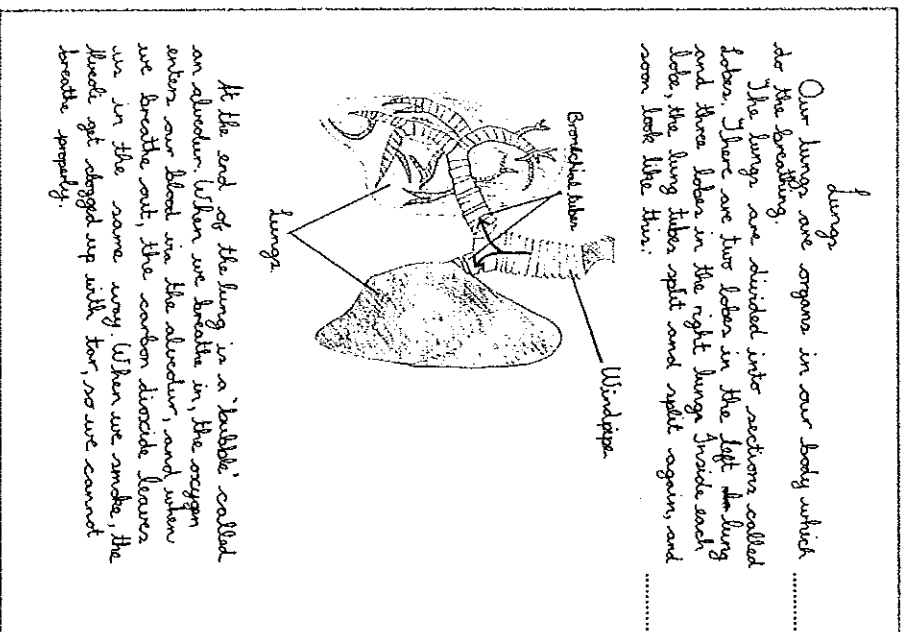 Lungs
Our lungs are organs in our body which
do the breathing.
The lungs are divided into sections called
lobes. There are two lobes in the left lung
and three lobes in the right lung. Inside each
lobe, the lung tubes split and split again, and
soon look like this:
Windpipe
Bronchial tubes
Lungs
At the end of the lung is a 'bubble' called
an alveolur. When we breathe in, the oxygen
enters our blood via the alveolur, and when
we breathe out, the carbon dioxide leaves
us in the same way. When we smoke, the
alveoli get clogged up with tar, so we cannot
breathe properly.